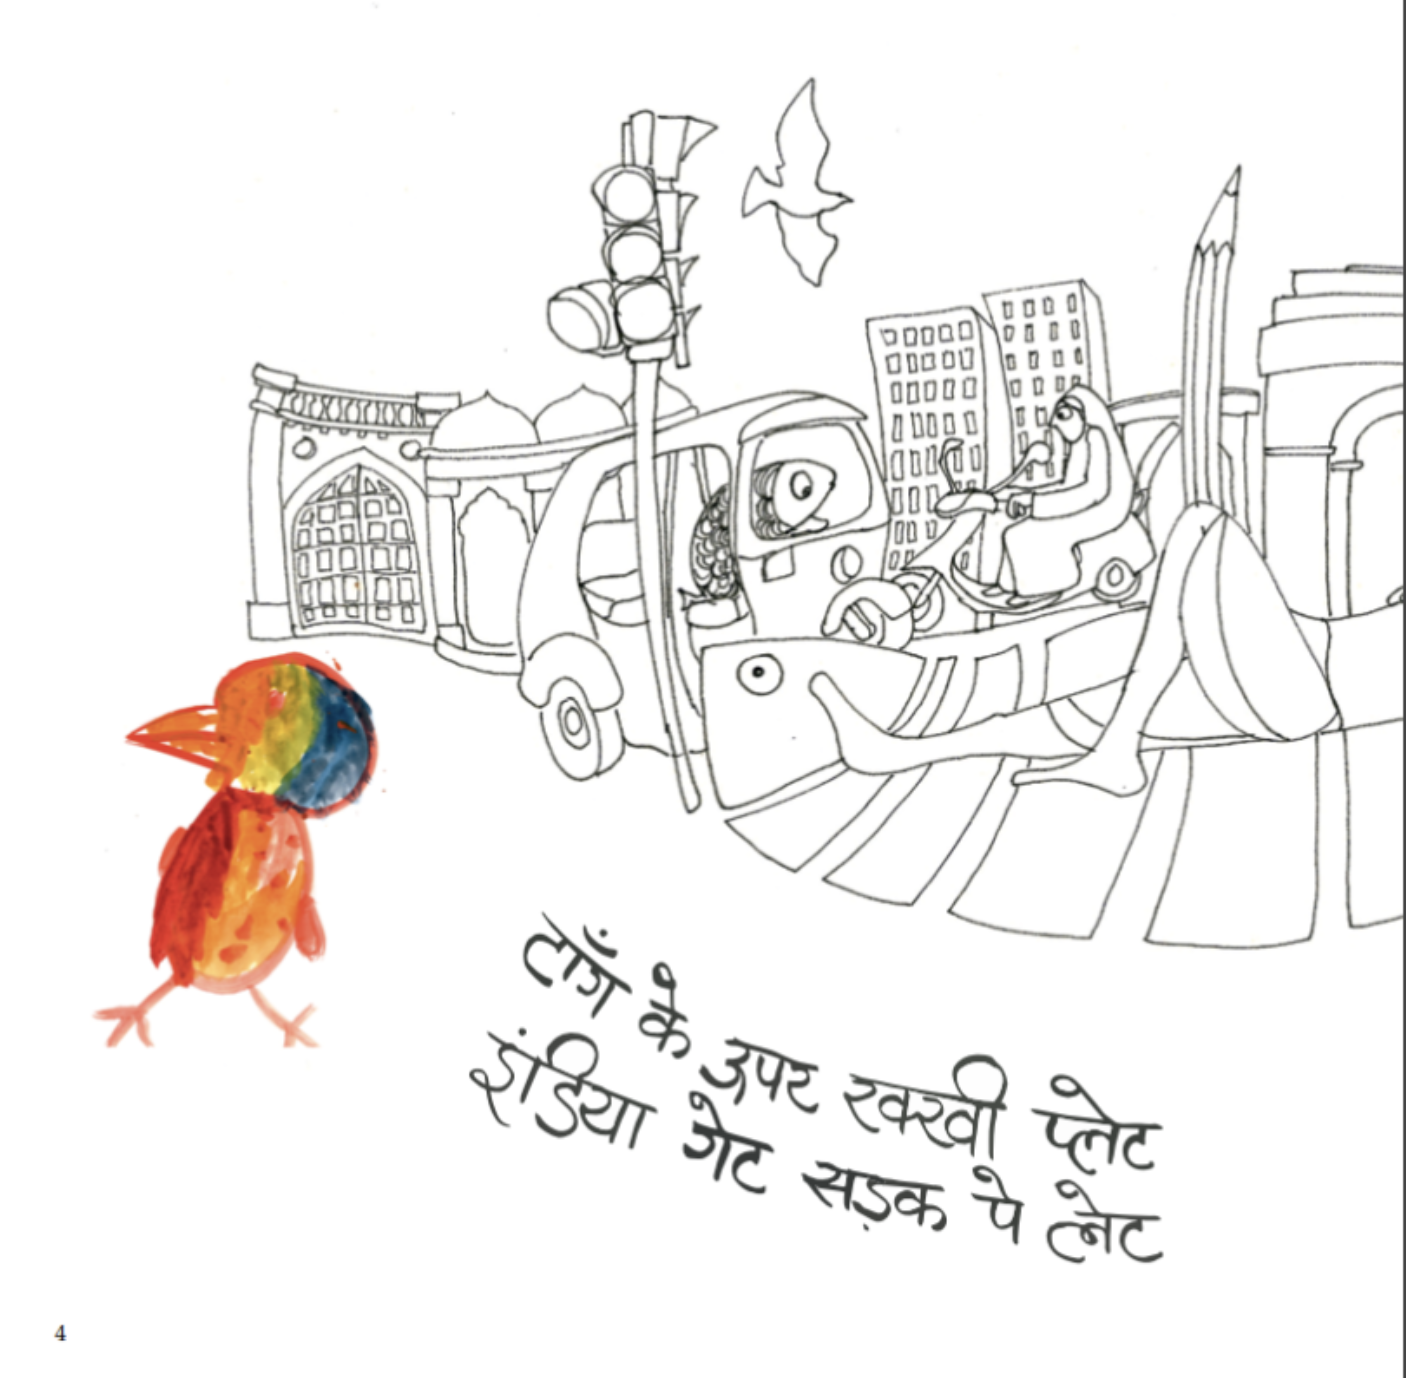 टाँग के ऊपर रक्खी प्लेट
इंडिया गेट सड़क पे लेट
4